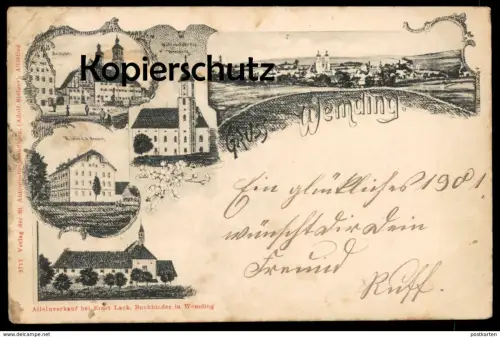 Kopierschutz
Gruss
Wemding.
Ein glückliches 1901
wünscht Dir Dein
Freund
Ruff.
Alleinverkauf bei Ernst Lack, Buchbinder in Wemding